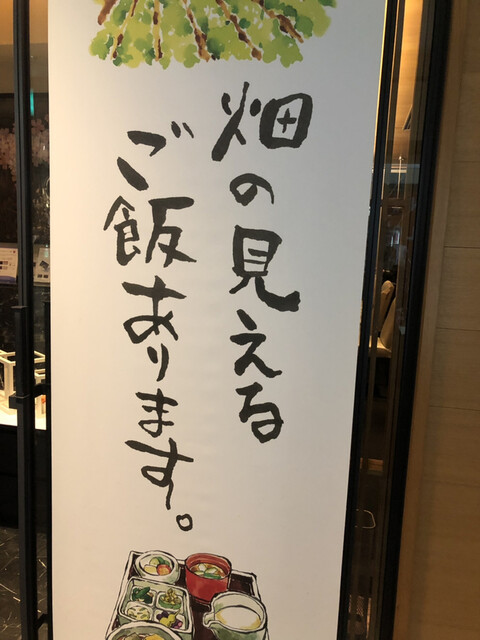 畑の見える
ご飯あります。